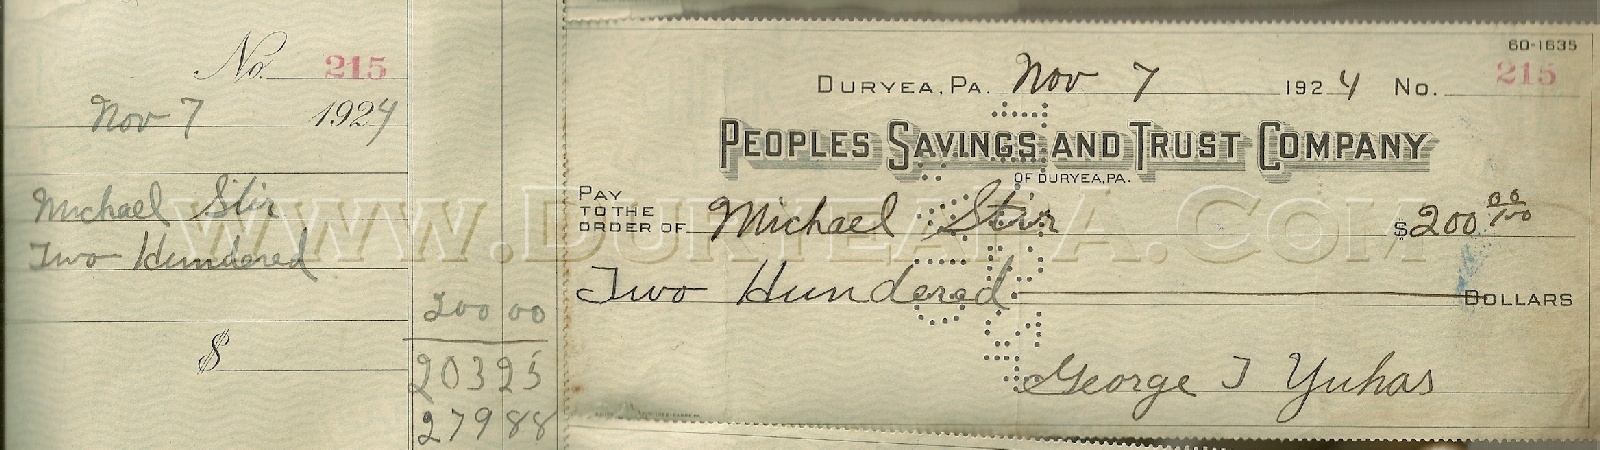 No. 215
Nov 7 1924
Michael Stir
Two Hundered
200 00
$
203 25
279 88
60-1635
DURYEA, PA. Nov 7 1924 No. 215
PEOPLES SAVINGS AND TRUST COMPANY
OF DURYEA, PA.
PAY TO THE ORDER OF Michael Stir $200 00/100
Two Hundered DOLLARS
George J Yuhas
WWW.DURYEAPA.COM